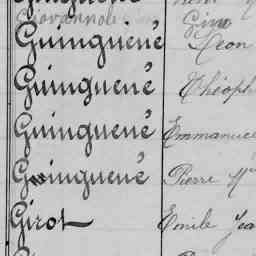 Giovannoli Gino
Guinguené Léon
Guinguené Théoph
Guinguené Emmanuel
Guinguené Pierre M
Girot Emile Jea